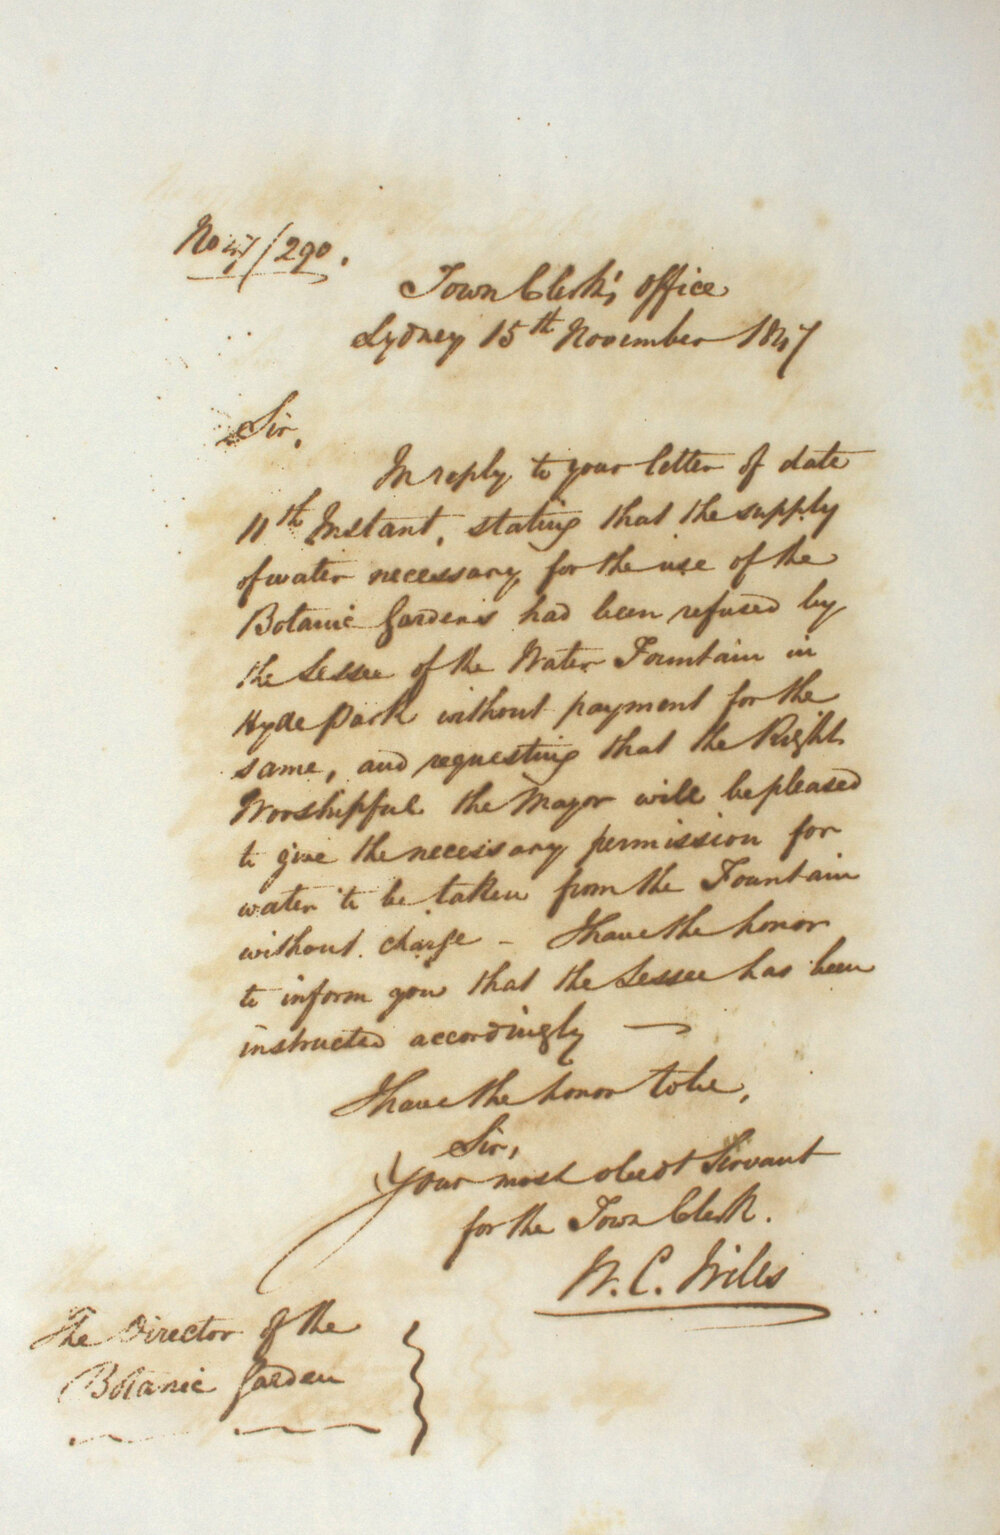 No 47/290.
Town Clerk's Office
Sydney 15th November 1847
Sir,
In reply to your letter of date
11th Instant, stating that the supply
of water necessary for the use of the
Botanic Gardens had been refused by
the Lessee of the Water Fountain in
Hyde Park without payment for the
same, and requesting that the Right
Worshipful the Mayor will be pleased
to give the necessary permission for
water to be taken from the Fountain
without charge - I have the honor
to inform you that the Lessee has been
instructed accordingly —
I have the honor to be,
Sir,
Your most obedt Servant
for the Town Clerk.
W. C. Wills
The Director of the
Botanic Garden